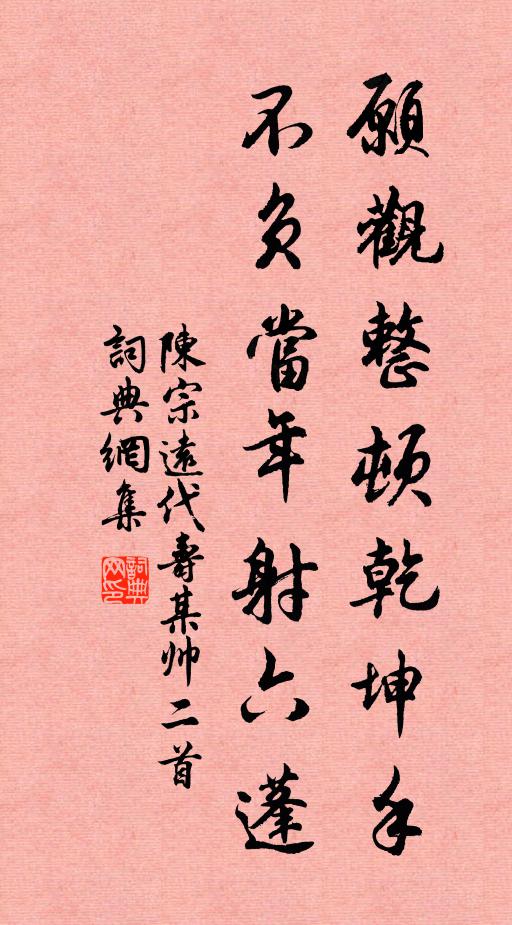 願觀整頓乾坤手
不負當年射六蓬
陳宗遠代壽某帅二首
詞典網集
詞典网印